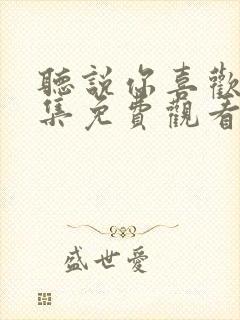 聽說你喜歡
集免費觀看
盛世愛